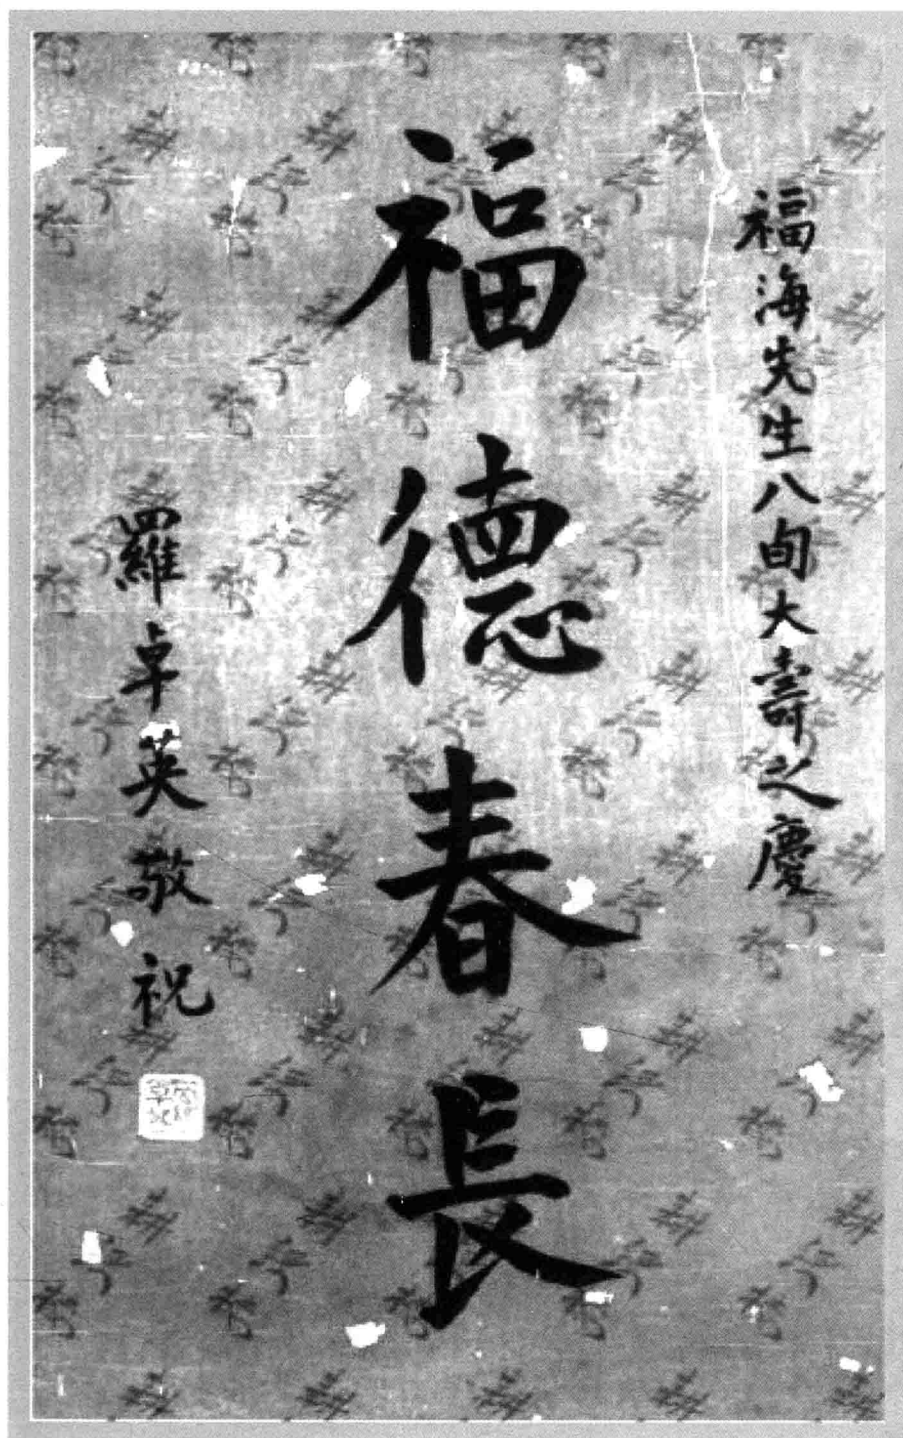 福海先生八旬大壽之慶
福德春長
羅卓英敬祝